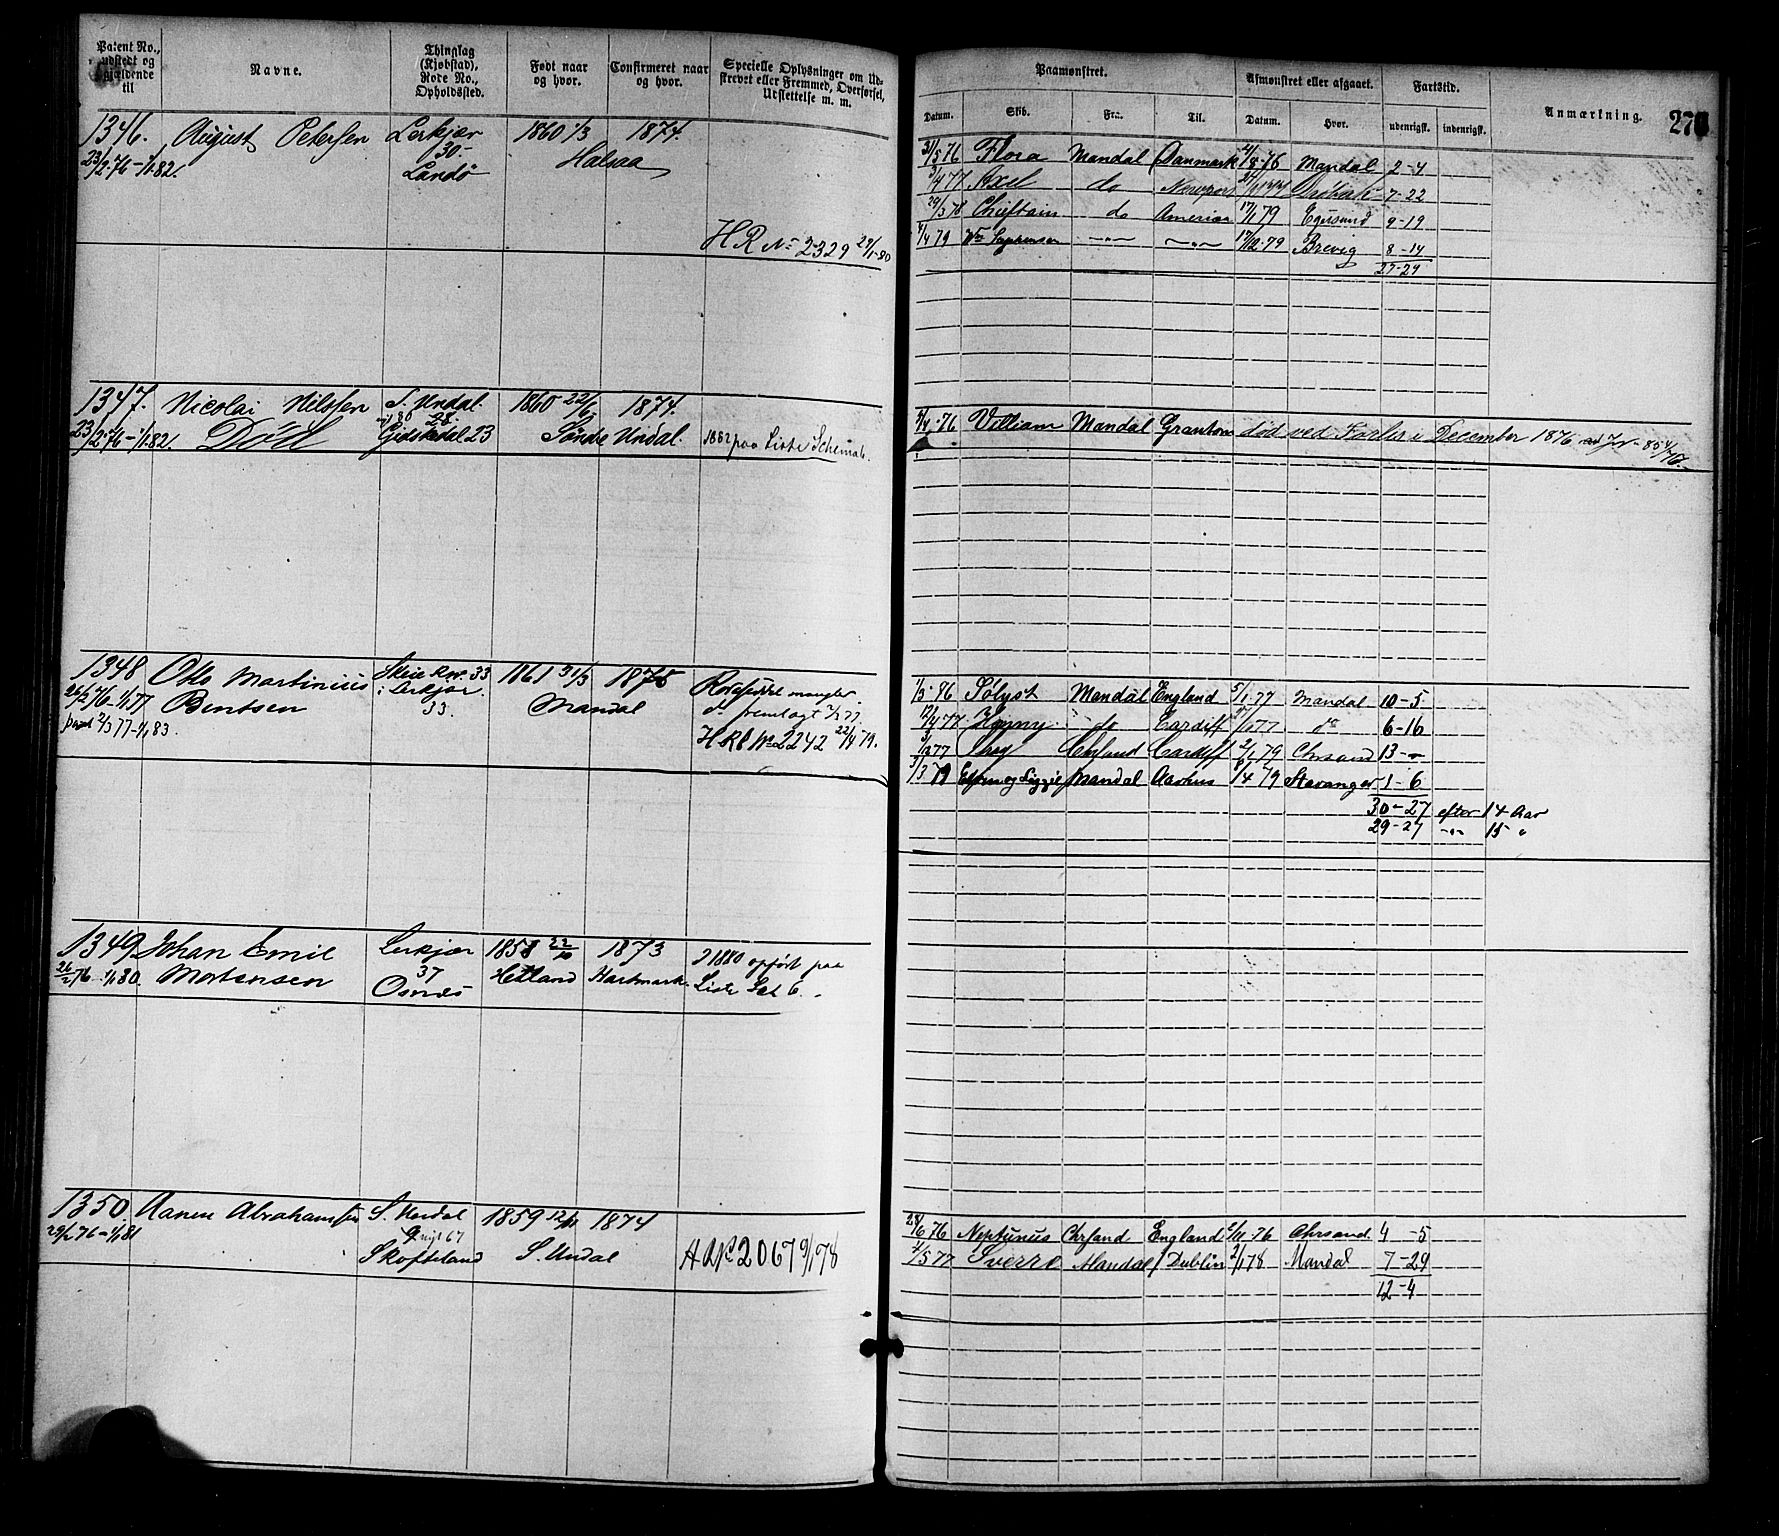 Patent No., udstedt og gjældende til
Navne.
Thinglag (Kjøbstad), Rode No., Opholdssted.
Født naar og hvor.
Confirmeret naar og hvor.
Specielle Oplysninger om Udskrevet eller Fremmed, Overførsel, Udslettelse m. m.
Paamønstret.
Afmønstret eller afgaaet.
Fartstid.
Anmærkning.
Datum.
Skib.
Fra.
Til.
Datum.
Hvor.
udenrigsk.
indenrigsk.
1346. August Petersen Lerkjær 1860 1/3 1874.
23/2.76–1/1.82. 30. Halsaa
Landø
H R No 2329 29/1-80
31/5 76 Flora Mandal Danmark 8.76 Mandal 2-4
3/4 77 Axel do 7-22
29/3 78 Chieftain do America 17/1 79 Egersund 9-19
4 79 Wm – " – – " – 17/12.79 Brevig 8-14
27-29
1347. Nicolai Nilssen S. Undal. 1860 22/6 1874.
23/2.76–1/1.82. Død Gidskedal 23 Søndre Undal. 1882 paa Liste Schema 6.
4.76 William Mandal Granton død ved Forlis i December 1876
1348 Otto Martinius Skeie Rov. 33 1861 31/3 1875
26/2 76–1/1 77 Bentsen i Lerkjær. Mandal
2/3 77–1/1 83 33. fremlagt 2/3 77
H R No 2242 22/4 79.
1/3.86 Sølyst Mandal England 5/1.77 Mandal 10-5
12/4 77 do Cardiff 77 do 6-16
77 Cardiff 79 Chrsand 13-"
3/3.79 og Lizzie Mandal Aarhus 8/4 79 Stavanger 1-6
30-27 efter 14 Aar
29-27 – " – 15 "
1349 Johan Emil Lerkjær 1858 22/10 1873
26/2 76–1/1 80. Mortensen 37 Hetland Hartmark. I 1880 opført paa
Osnes Liste Lit 6.
1350. Aanen Abrahamsen S. Undal 1859 12/11 1874
29/2 76–1/1 81 67
Skofteland S. Undal 2067 9/1 78
28/6 76 Neptunus Chrsand England 76 Chrsand 4-5
4/5 77 Sverre Mandal Dublin 2/1 78 Mandal 7-29
12-4